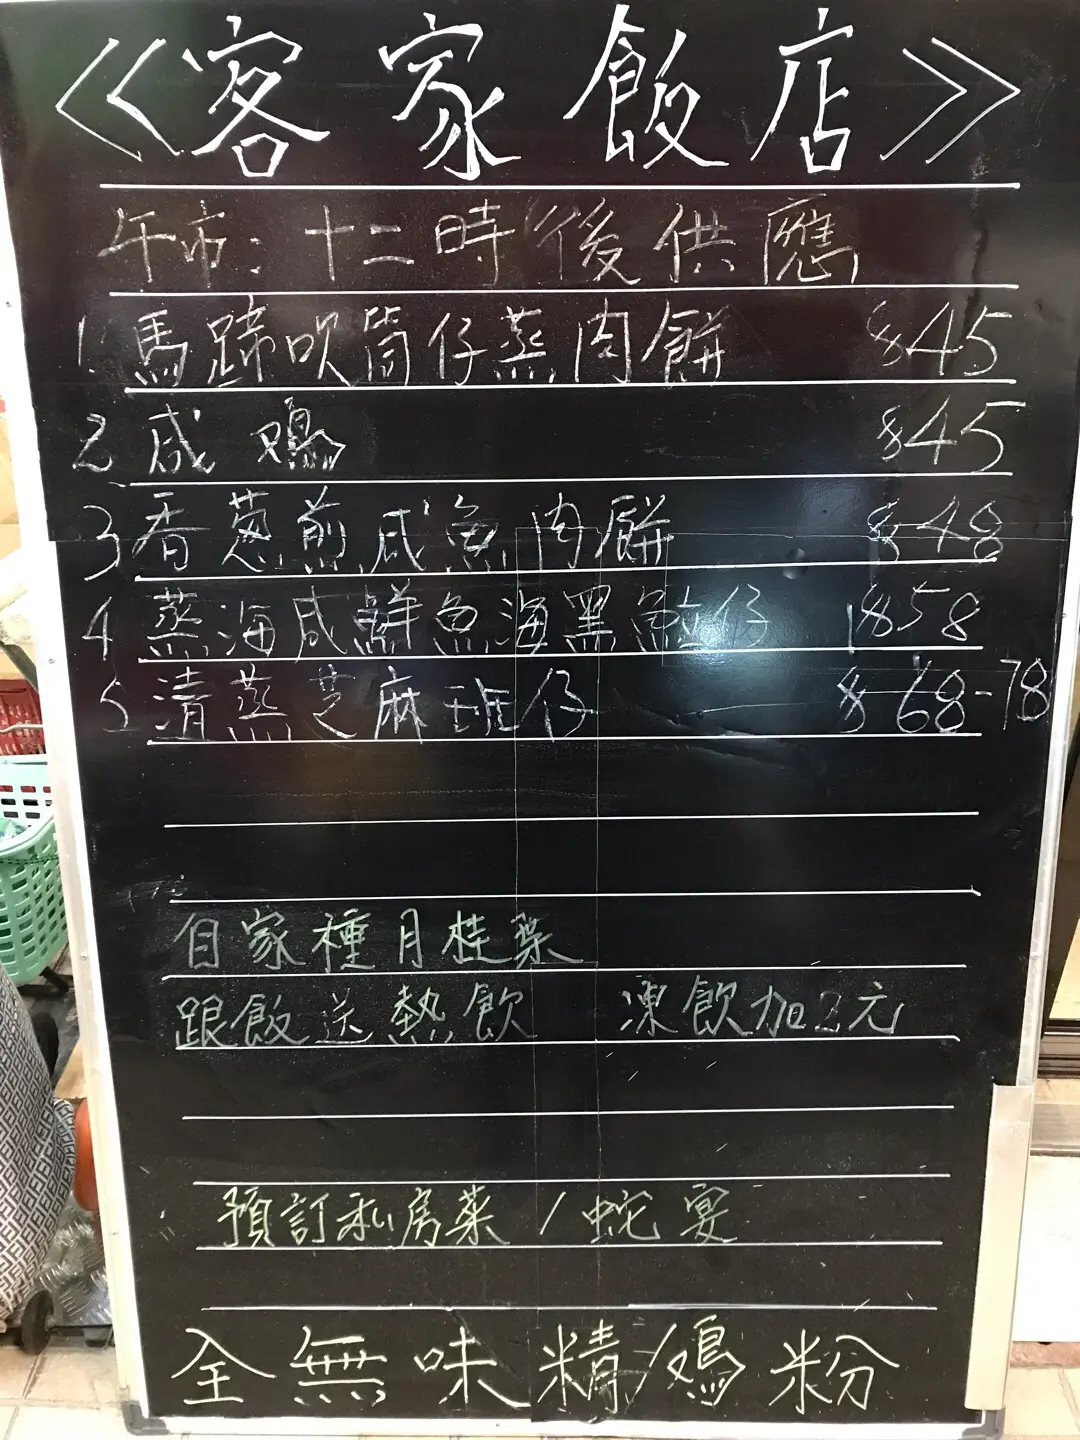 《客家飯店》
午市：十二時後供應
1. 馬蹄吹筒仔蒸肉餅 $45
2 咸鷄 $45
3 香葱煎咸魚肉餅 $48
4 蒸海咸鮮魚海黑鱲仔 $58
5 清蒸芝麻班仔 $68-78
自家種月桂葉
跟飯送熱飲 凍飲加2元
預訂私房菜/蛇宴
全無味精/鷄粉